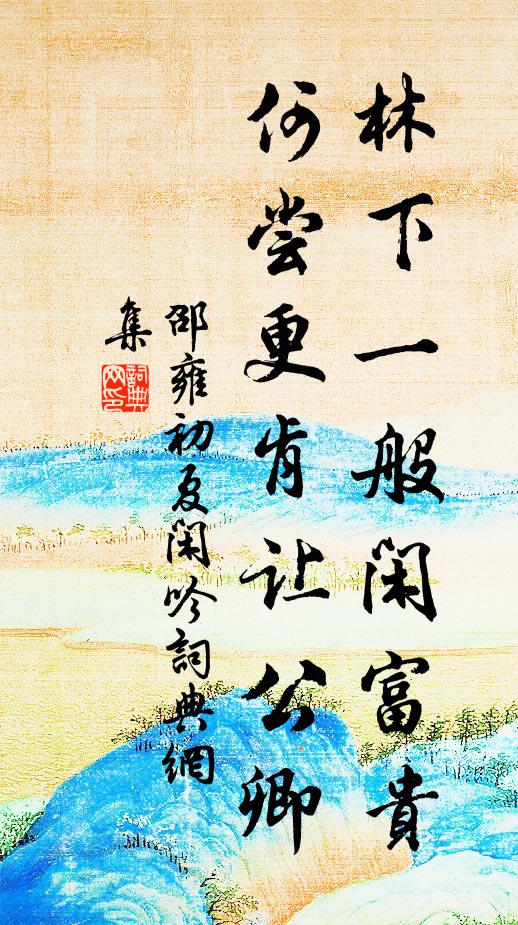 林下一般闲富貴
何尝更肯让公卿
邵雍初夏闲吟詞典網
集
詞典
网印